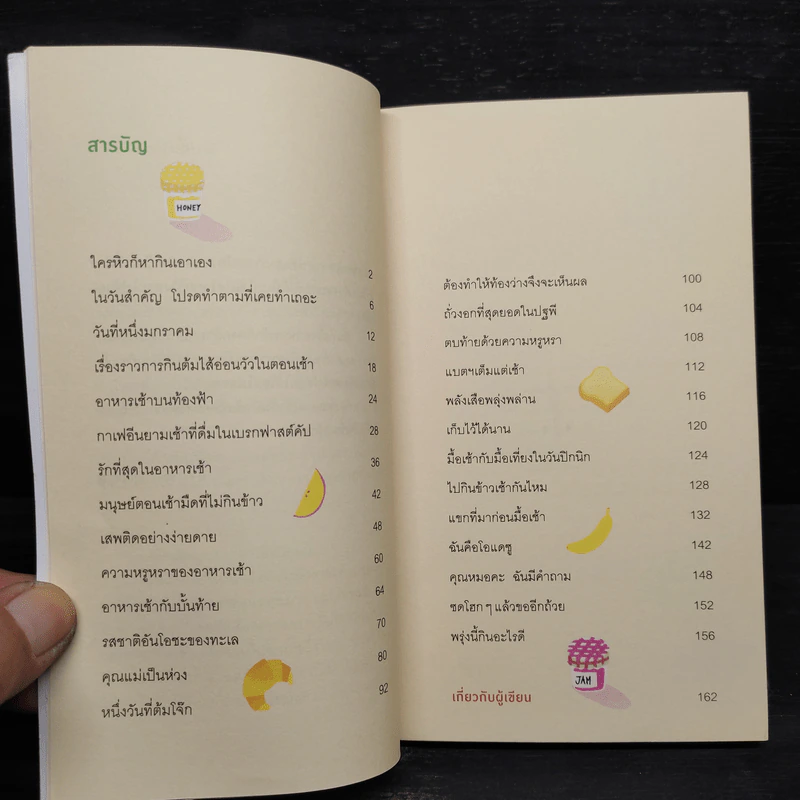 สารบัญ
HONEY
ใครหิวก็หากินเอาเอง 2
ในวันสำคัญ โปรดทำตามที่เคยทำเถอะ 6
วันที่หนึ่งมกราคม 12
เรื่องราวการกินต้มไส้อ่อนวัวในตอนเช้า 18
อาหารเช้าบนท้องฟ้า 24
กาเฟอีนยามเช้าที่ดื่มในเบรกฟาสต์คัป 28
รักที่สุดในอาหารเช้า 36
มนุษย์ตอนเช้ามืดที่ไม่กินข้าว 42
เสพติดอย่างง่ายดาย 48
ความหรูหราของอาหารเช้า 60
อาหารเช้ากับบั้นท้าย 64
รสชาติอันโอชะของทะเล 70
คุณแม่เป็นห่วง 80
หนึ่งวันที่ต้มโจ๊ก 92
ต้องทำให้ท้องว่างจึงจะเห็นผล 100
ถั่วงอกที่สุดยอดในปฐพี 104
ตบท้ายด้วยความหรูหรา 108
แบตฯเต็มแต่เช้า 112
พลังเสือพลุ่งพล่าน 116
เก็บไว้ได้นาน 120
มื้อเช้ากับมื้อเที่ยงในวันปิกนิก 124
ไปกินข้าวเช้ากันไหม 128
แขกที่มาก่อนมื้อเช้า 132
ฉันคือโอแดซู 142
คุณหมอคะ ฉันมีคำถาม 148
ซดโฮก ๆ แล้วขออีกถ้วย 152
พรุ่งนี้กินอะไรดี 156
JAM
เกี่ยวกับผู้เขียน 162